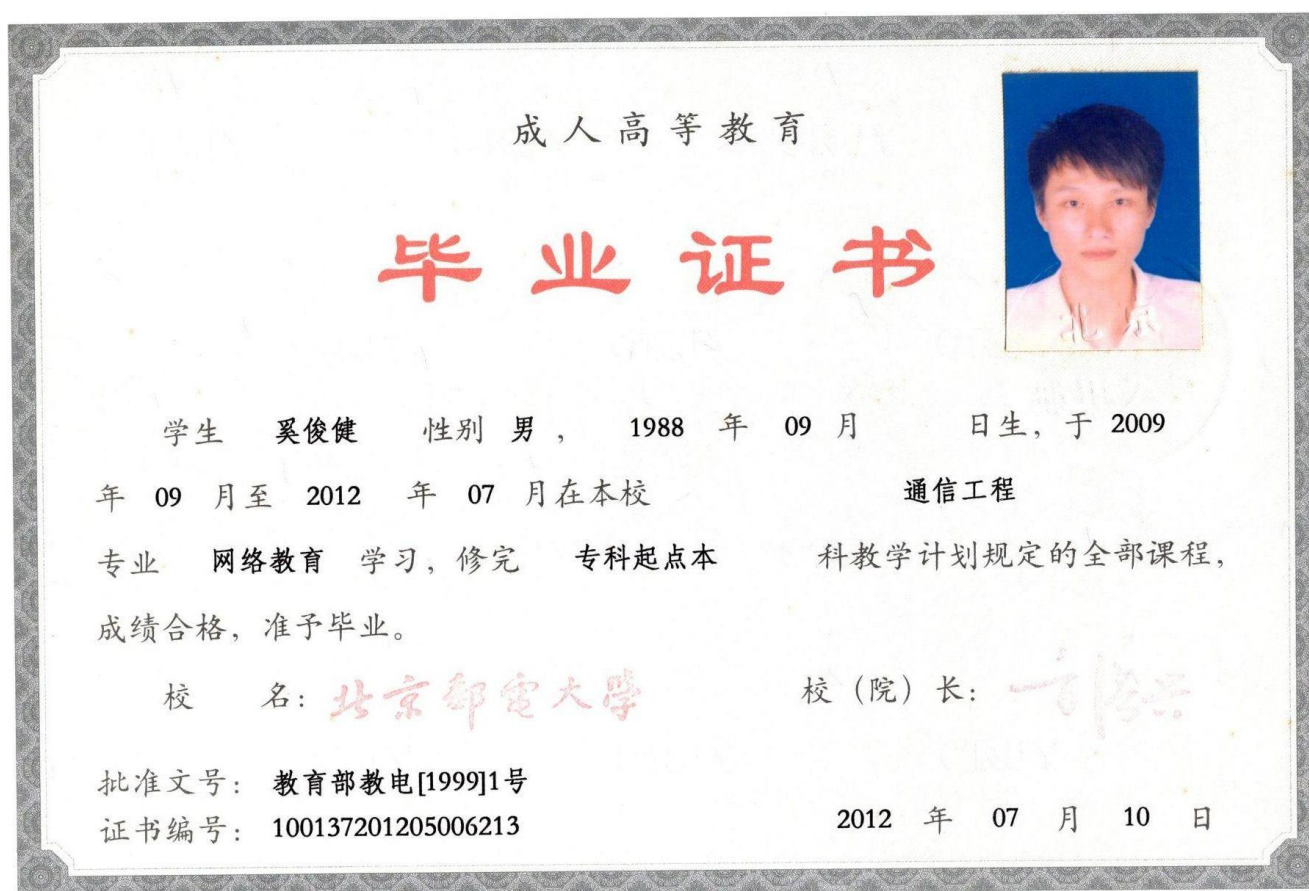 成人高等教育
毕业证书
北京
学生 奚俊健 性别 男 ， 1988 年 09 月 日生，于 2009
年 09 月至 2012 年 07 月在本校 通信工程
专业 网络教育 学习，修完 专科起点本 科教学计划规定的全部课程，
成绩合格，准予毕业。
校 名：北京邮电大学 校（院）长：
批准文号：教育部教电[1999]1号
证书编号：100137201205006213 2012 年 07 月 10 日